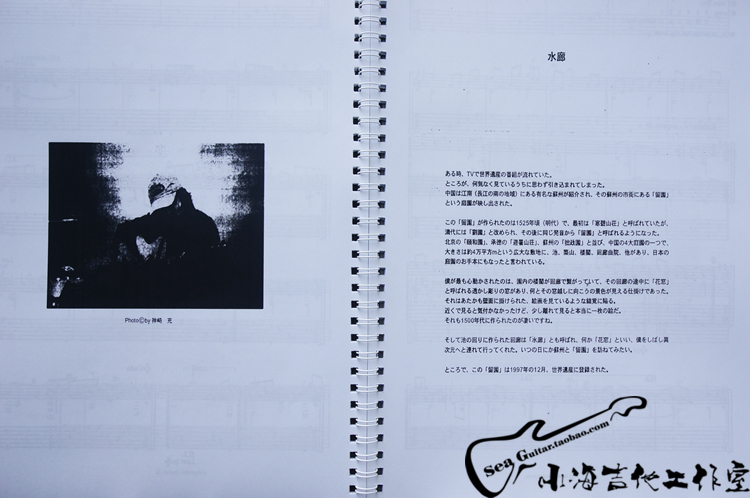 Photo©by 神崎 充
水廊
ある時、TVで世界遺産の番組が流れていた。
ところが、何気なく見ているうちに思わず引き込まれてしまった。
中国は江南（長江の南の地域）にある有名な蘇州が紹介され、その蘇州の市街にある「留園」
という庭園が映し出された。
この「留園」が作られたのは1525年頃（明代）で、最初は「寒碧山荘」と呼ばれていたが、
清代には「劉園」と改められ、その後に同じ発音から「留園」と呼ばれるようになった。
北京の「頤和園」、承徳の「避暑山荘」、蘇州の「拙政園」と並び、中国の4大庭園の一つで、
大きさは約4万平方mという広大な敷地に、池、築山、楼閣、祠廊曲院、他があり、日本の
庭園のお手本にもなったと言われている。
僕が最も心動かされたのは、園内の楼閣が回廊で繋がっていて、その回廊の途中に「花窓」
と呼ばれる透かし彫りの窓があり、何とその窓越しに向こうの景色が見える仕掛けであった。
それはあたかも壁面に掛けられた、絵画を見ているような錯覚に陥る。
近くで見ると気付かなかったけど、少し離れて見ると本当に一枚の絵だ。
それも1500年代に作られたのが凄いですね。
そして池の回りに作られた回廊は「水廊」とも呼ばれ、何か「花窓」といい、僕をしばし異
次元へと連れて行ってくれた。いつの日にか蘇州と「留園」を訪ねてみたい。
ところで、この「留園」は1997年の12月、世界遺産に登録された。
Sea Guitar.taobao.com
小海吉他工作室